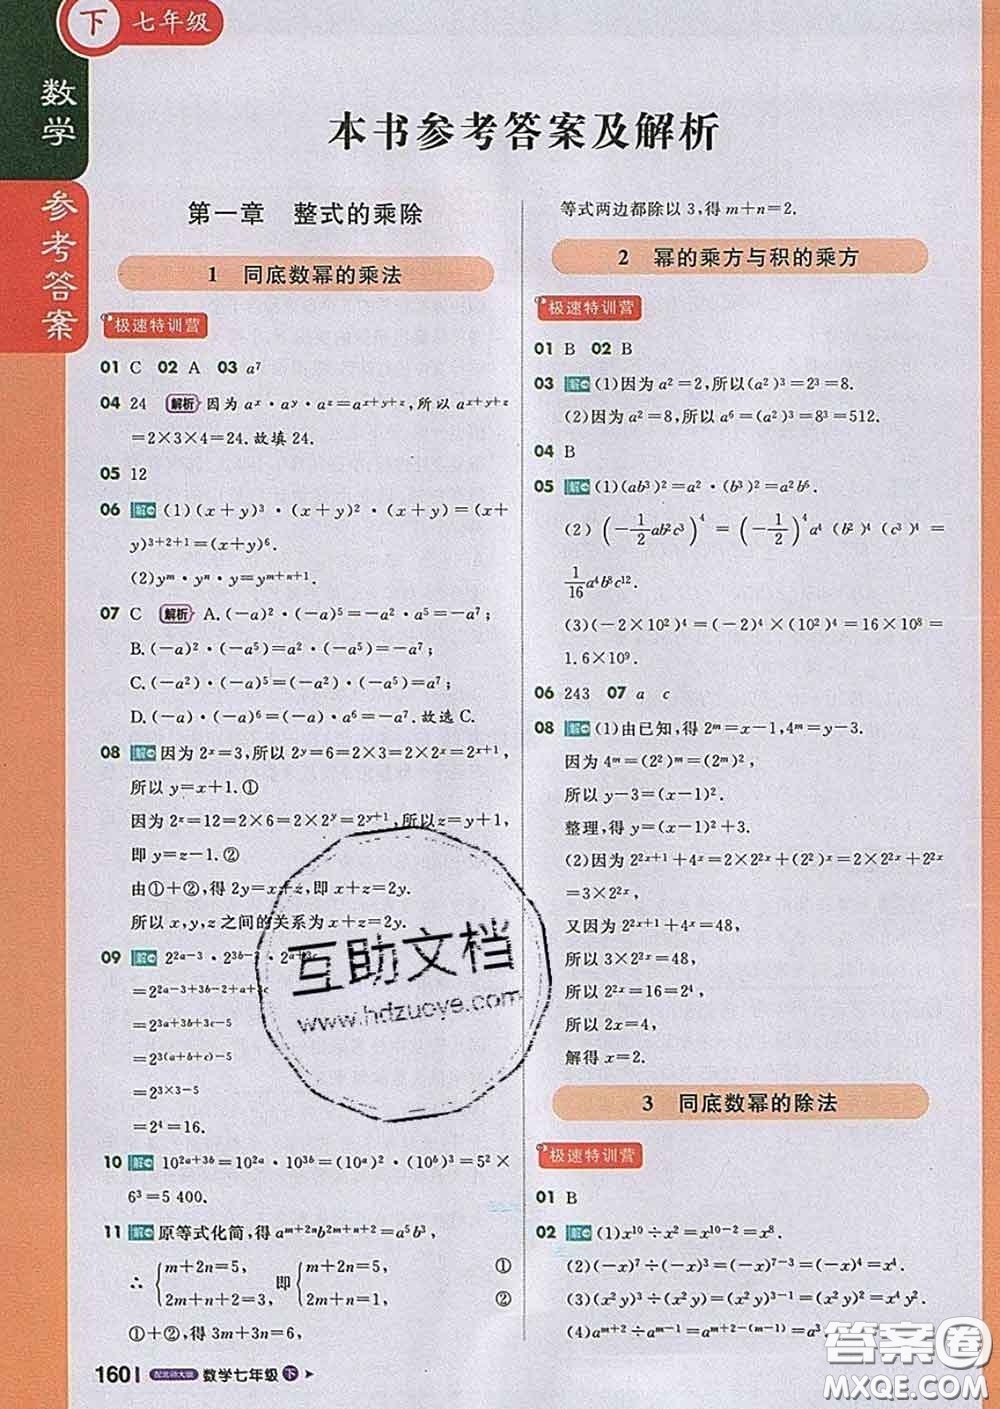 下 七年级
数学
参考答案
本书参考答案及解析
第一章 整式的乘除
1 同底数幂的乘法
极速特训营
01 C 02 A 03 a⁷
04 24 解析 因为 aˣ·aʸ·aᶻ=aˣ⁺ʸ⁺ᶻ,所以 aˣ⁺ʸ⁺ᶻ
=2×3×4=24.故填 24.
05 12
06 解 (1)(x+y)³·(x+y)²·(x+y)=(x+
y)³⁺²⁺¹=(x+y)⁶.
(2)yᵐ·yⁿ·y=yᵐ⁺ⁿ⁺¹.
07 C 解析 A.(-a)²·(-a)⁵=-a²·a⁵=-a⁷;
B.(-a)²·(-a⁵)=a²·(-a⁵)=-a⁷;
C.(-a²)·(-a)⁵=(-a²)·(-a⁵)=a⁷;
D.(-a)·(-a)⁶=(-a)·a⁶=-a⁷.故选 C.
08 解 因为 2ˣ=3,所以 2ʸ=6=2×3=2×2ˣ=2ˣ⁺¹,
所以 y=x+1.①
因为 2ᶻ=12=2×6=2×2ʸ=2ʸ⁺¹,所以 z=y+1,
即 y=z-1.②
由①+②,得 2y=x+z,即 x+z=2y.
所以 x,y,z 之间的关系为 x+z=2y.
09 解 2²ᵃ⁻³·2³ᵇ⁻²·2ᵃ⁺³ᶜ
=2²ᵃ⁻³⁺³ᵇ⁻²⁺ᵃ⁺³ᶜ
=2³ᵃ⁺³ᵇ⁺³ᶜ⁻⁵
=2³⁽ᵃ⁺ᵇ⁺ᶜ⁾⁻⁵
=2³ˣ³⁻⁵
=2⁴=16.
10 解 10²ᵃ⁺³ᵇ=10²ᵃ·10³ᵇ=(10ᵃ)²·(10ᵇ)³=5²×
6³=5 400.
11 解 原等式化简,得 aᵐ⁺²ⁿb²ᵐ⁺ⁿ⁺²=a⁵b³,
∴ {m+2n=5, 即 {m+2n=5, ①
2m+n+2=3, 2m+n=1, ②
①+②,得 3m+3n=6,
160 配北师大版 数学七年级 下
等式两边都除以 3,得 m+n=2.
2 幂的乘方与积的乘方
极速特训营
01 B 02 B
03 解 (1)因为 a²=2,所以(a²)³=2³=8.
(2)因为 a²=8,所以 a⁶=(a²)³=8³=512.
04 B
05 解 (1)(ab³)²=a²·(b³)²=a²b⁶.
(2)(-1/2 ab²c³)⁴=(-1/2)⁴a⁴(b²)⁴(c³)⁴=
1/16 a⁴b⁸c¹².
(3)(-2×10²)⁴=(-2)⁴×(10²)⁴=16×10⁸=
1.6×10⁹.
06 243 07 a c
08 解 (1)由已知,得 2ᵐ=x-1,4ᵐ=y-3.
因为 4ᵐ=(2²)ᵐ=(2ᵐ)²,
所以 y-3=(x-1)².
整理,得 y=(x-1)²+3.
(2)因为 2²ˣ⁺¹+4ˣ=2×2²ˣ+(2²)ˣ=2×2²ˣ+2²ˣ
=3×2²ˣ,
又因为 2²ˣ⁺¹+4ˣ=48,
所以 3×2²ˣ=48,
所以 2²ˣ=16=2⁴,
所以 2x=4,
解得 x=2.
3 同底数幂的除法
极速特训营
01 B
02 解 (1)x¹⁰÷x²=x¹⁰⁻²=x⁸.
(2)(-x)⁷÷(-x)³=(-x)⁷⁻³=(-x)⁴=x⁴.
(3)(x²y)³÷(x²y)=(x²y)³⁻¹=(x²y)²=x⁴y².
(4)aᵐ⁺²÷aᵐ⁻¹=aᵐ⁺²⁻⁽ᵐ⁻¹⁾=a³.
互助文档
www.hdzuoye.com
答案圈
MXQE.COM